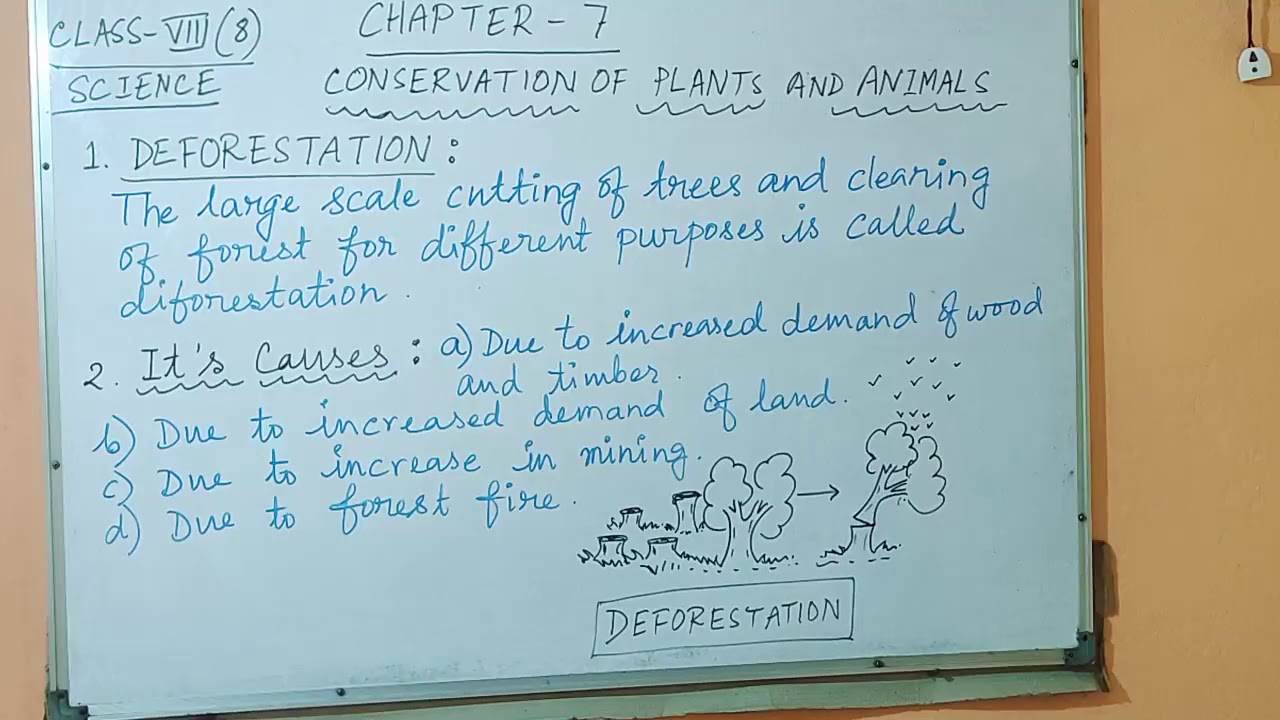 CLASS-VIII (8)
CHAPTER - 7
SCIENCE
CONSERVATION OF PLANTS AND ANIMALS
1. DEFORESTATION :
The large scale cutting of trees and clearing
of forest for different purposes is called
diforestation.
2. It's Causes : a) Due to increased demand of wood
and timber.
b) Due to increased demand of land.
c) Due to increase in mining.
d) Due to forest fire.
DEFORESTATION